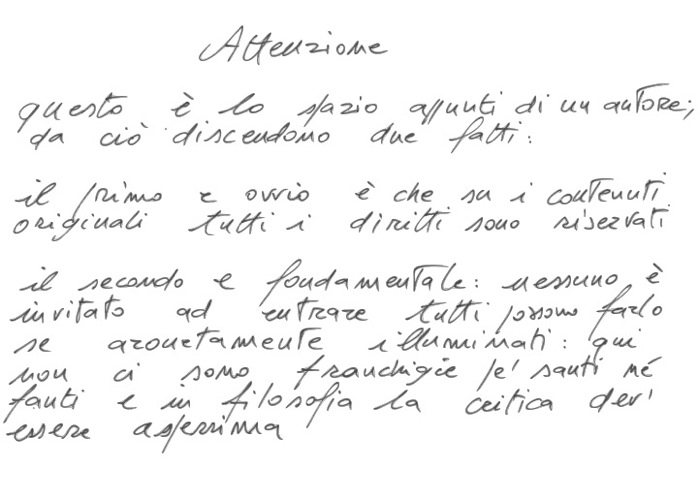 Attenzione
questo è lo spazio appunti di un autore;
da ciò discendono due fatti:
il primo e ovvio è che su i contenuti
originali tutti i diritti sono riservati
il secondo e fondamentale: nessuno è
invitato ad entrare tutti possono farlo
se arouetamente illuminati: qui
non ci sono franchigie pe' santi né
fanti e in filosofia la critica dev'
essere asperrima